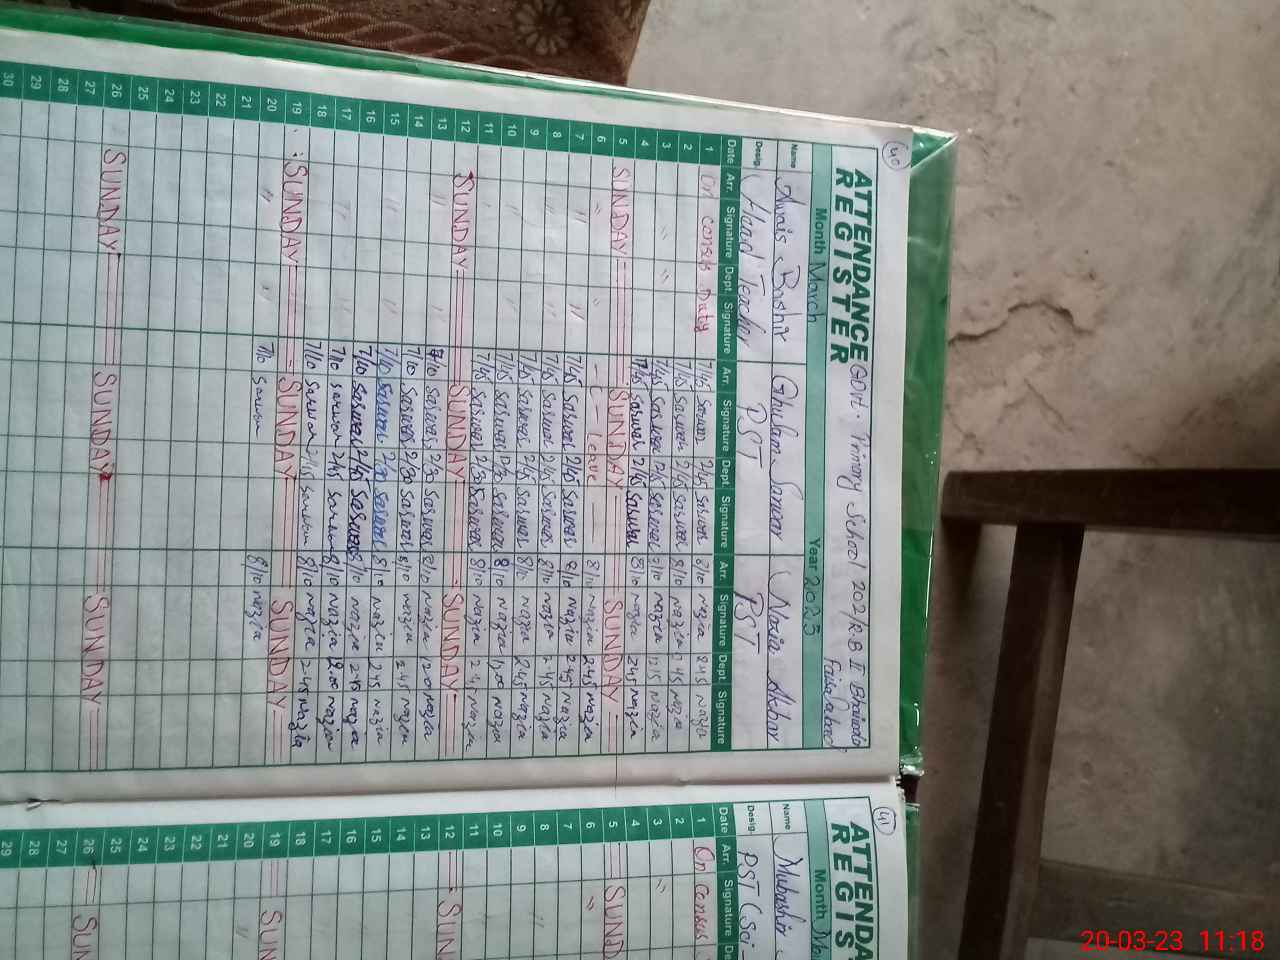 40
ATTENDANCE REGISTER
Govt. Primary School 202/R.B II Bhaiwala
Faisalabad
Month March Year 2023
Name Awais Bashir Ghulam Sarwar Nazia Akbar
Desig. Head Teacher PST PST
Date Arr. Signature Dept. Signature Arr. Signature Dept. Signature Arr. Signature Dept. Signature
1 On census Duty 7/45 Sarwar 2/45 Sarwar 8/10 Nazia 2.45 Nazia
2 7/45 Sarwar 2/45 Sarwar 8/10 Nazia 2.45 Nazia
3 " " 7/45 Sarwar 12/15 Sarwar 8/10 Nazia 12.15 Nazia
4 7/45 Sarwar 2/45 Sarwar 8/10 Nazia 2.45 Nazia
5 SUNDAY SUNDAY SUNDAY
6 " " C - Leave 8/10 Nazia 2.45 Nazia
7 " " 7/45 Sarwar 2/45 Sarwar 8/10 Nazia 2.45 Nazia
8 7/45 Sarwar 2/45 Sarwar 8/10 Nazia 2.45 Nazia
9 7/45 Sarwar 2/45 Sarwar 8/10 Nazia 2.45 Nazia
10 " " 7/45 Sarwar Sarwar 8/10 Nazia Nazia
11 7/45 Sarwar 2/30 Sarwar 8/10 Nazia Nazia
12 SUNDAY SUNDAY SUNDAY
13 " " 7/10 Sarwar 2/30 Sarwar 8/10 Nazia Nazia
14 7/10 Sarwar 2/30 Sarwar 8/10 Nazia 2.45 Nazia
15 " " 7/10 Sarwar Sarwar 8/10 Nazia 2.45 Nazia
16 7/10 Sarwar 2/45 Sarwar 8/10 Nazia 2.45 Nazia
17 " " 7/10 Sarwar 2/45 Sarwar 8/10 Nazia Nazia
18 7/10 Sarwar 2/45 Sarwar 8/10 Nazia 2.45 Nazia
19 SUNDAY SUNDAY SUNDAY
20 " " 7/10 Sarwar 8/10 Nazia
21
22
23
24
25
26 SUNDAY SUNDAY SUNDAY
27
28
29
30
41
ATTENDA
REGIS
Month Ma
Name Mubashir
Desig. PST (Sci-
Arr. Signature De
1 On Census
2
3 "
4
5 SUND
6 "
7
8 "
9
10
11
12 SUN
13
14
15
16
17
18
19 SUN
20 "
21
22
23
24
25
26 SUN
27
28
29
20-03-23 11:18